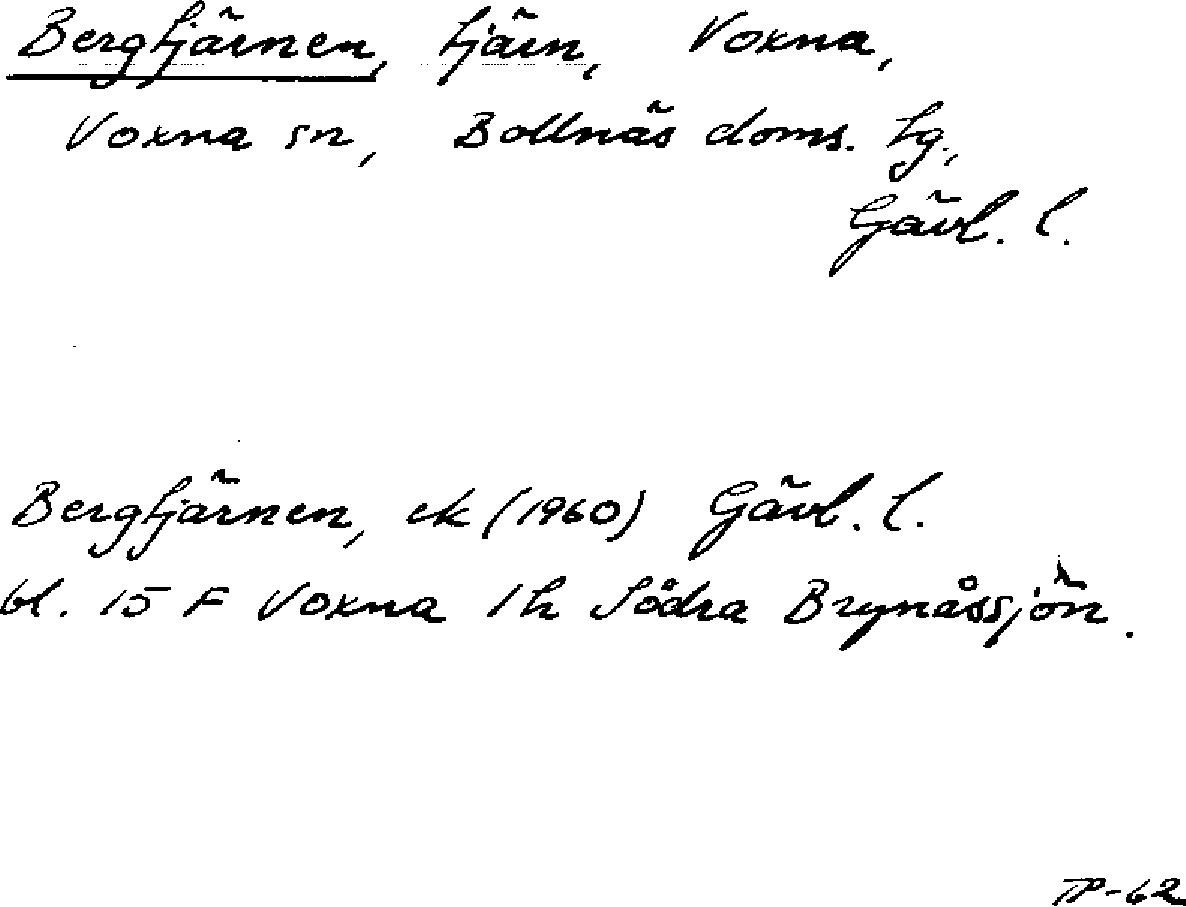 Bergtjärnen, tjärn, Voxna,
Voxna sn, Bollnäs doms. tg.,
Gävl. l.
Bergtjärnen, ek (1960) Gävl. l.
bl. 15 F Voxna 1h Södra Brynåssjön.
TP-62